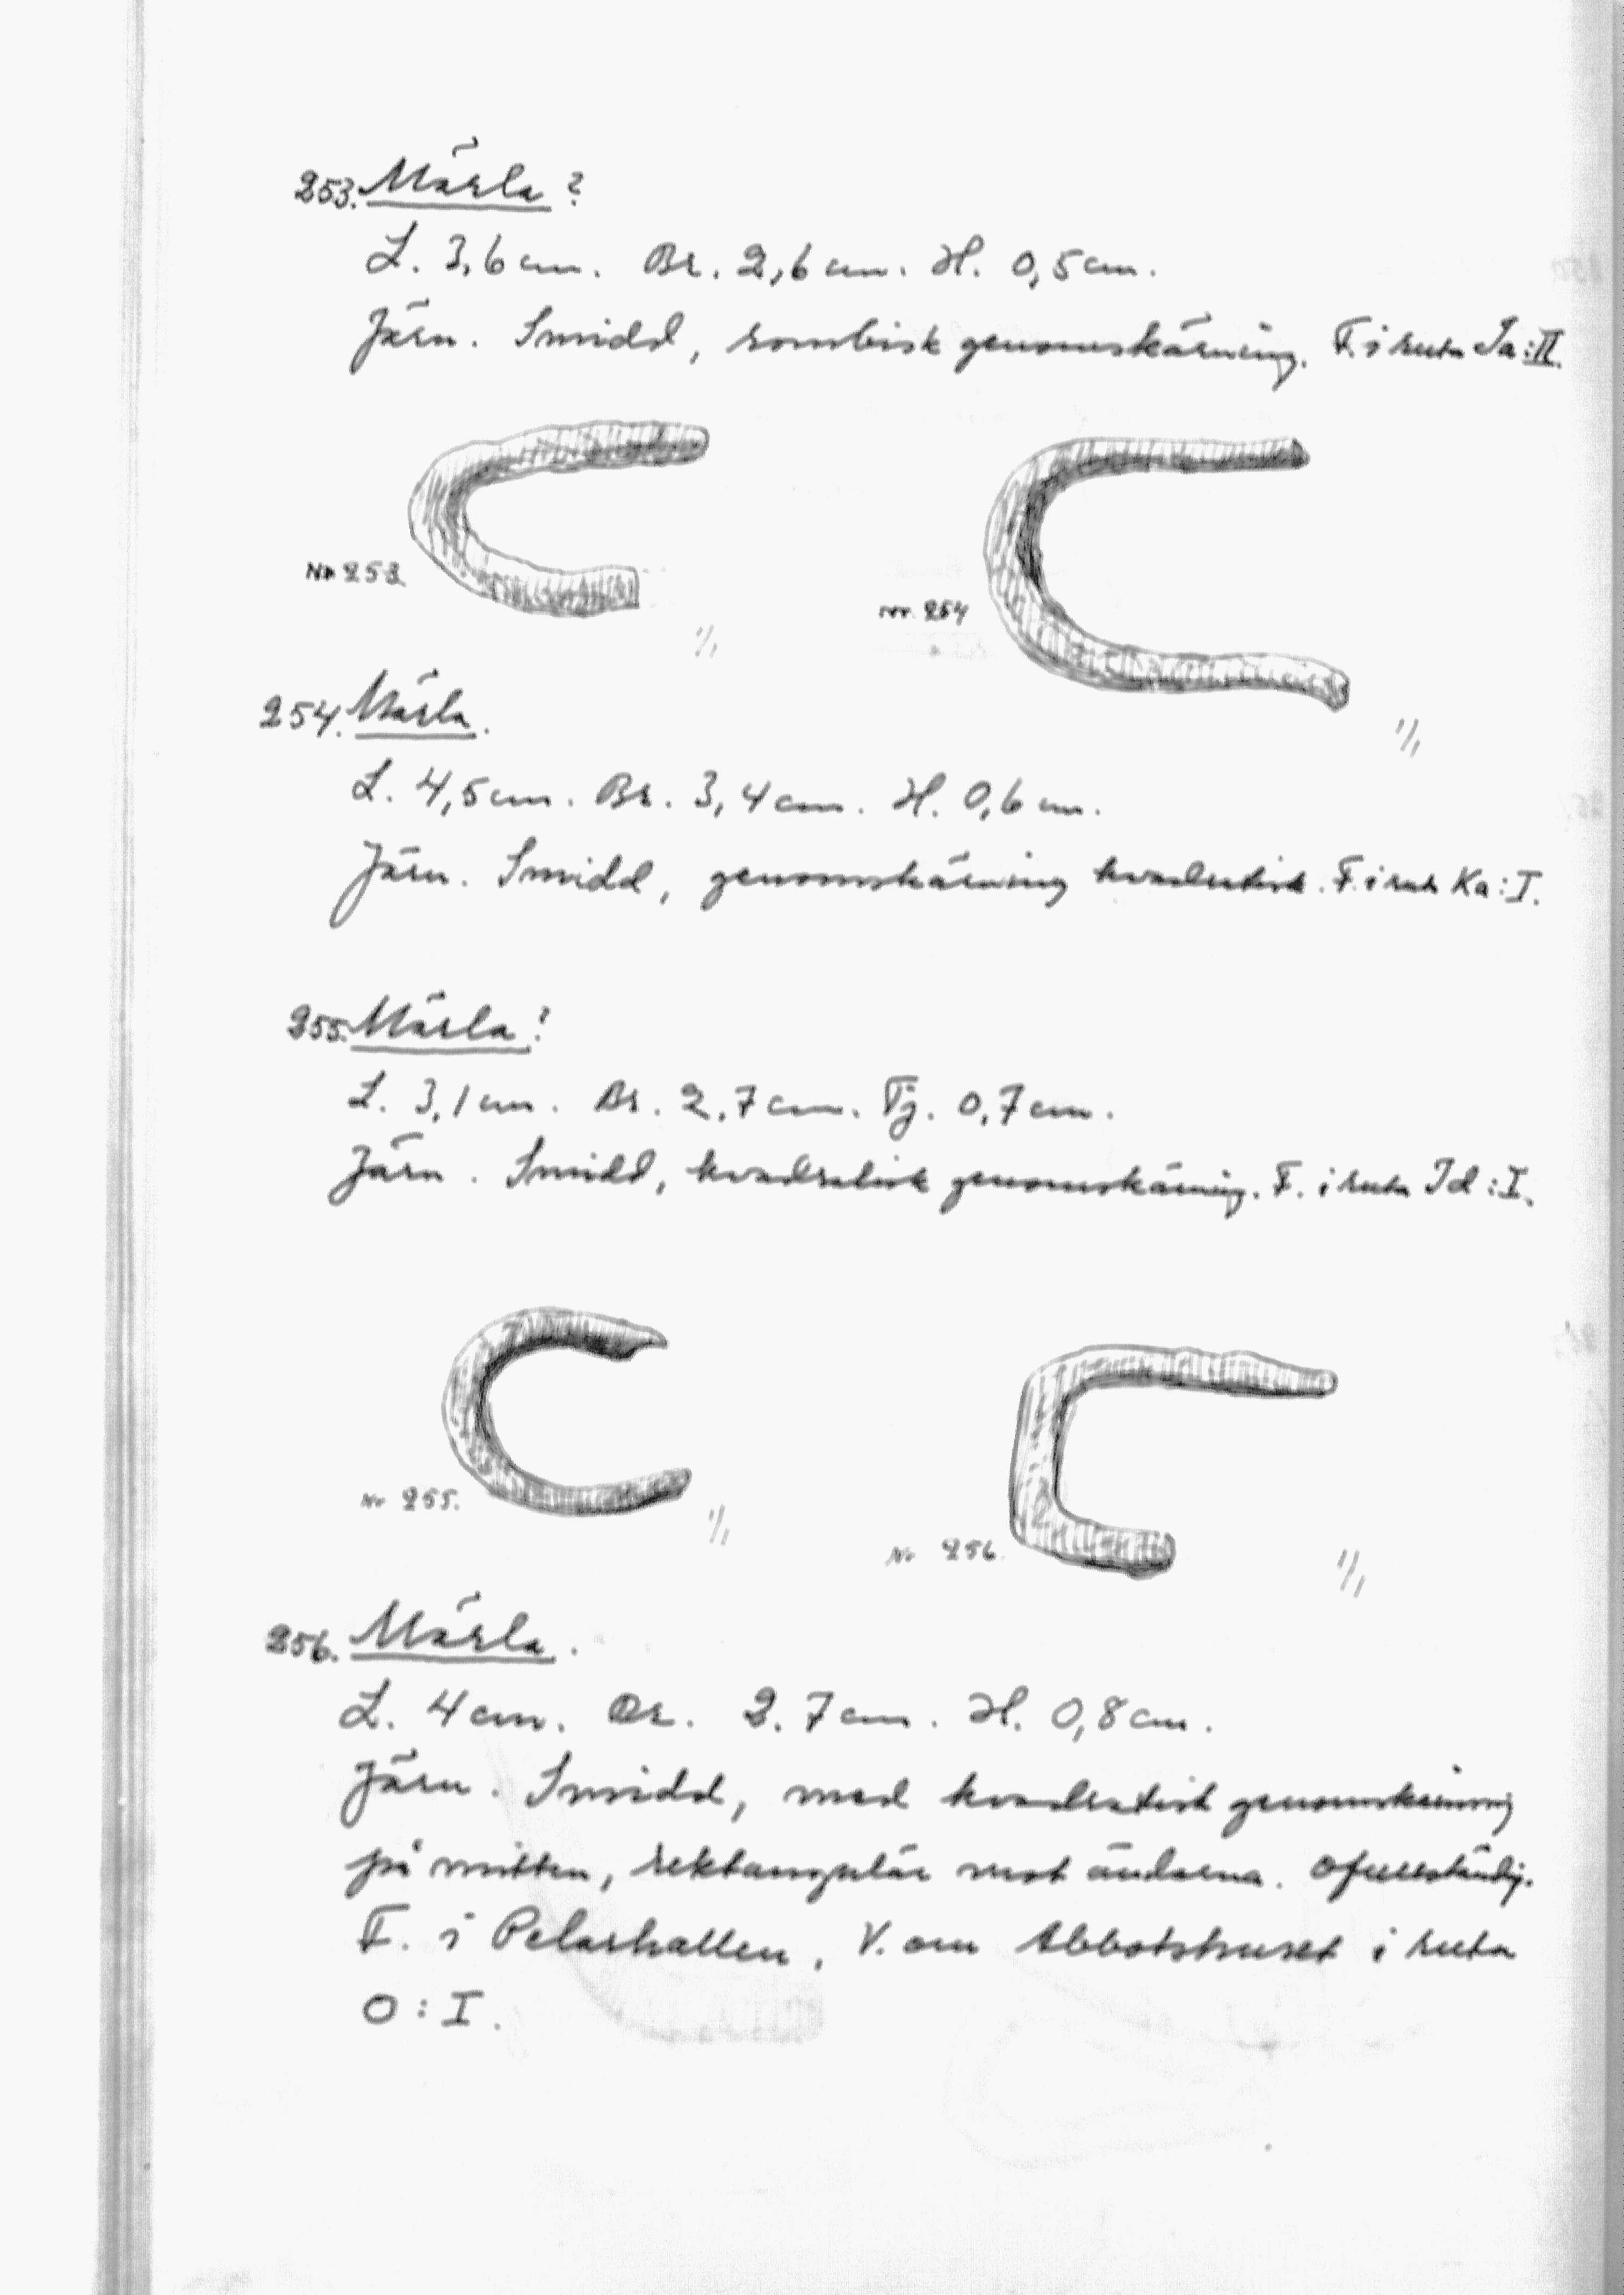 253. Märla ?
L. 3,6 cm. Br. 2,6 cm. H. 0,5 cm.
Järn. Smidd, rombisk genomskärning. F. i ruta Ia:II.
Nr 253
1/1
nr. 254
1/1
254. Märla.
L. 4,5 cm. Br. 3,4 cm. H. 0,6 cm.
Järn. Smidd, genomskärning kvadratisk. F. i ruta Ka:I.
255. Märla?
L. 3,1 cm. Br. 2,7 cm. Tj. 0,7 cm.
Järn. Smidd, kvadratisk genomskärning. F. i ruta Id:I.
Nr 255.
1/1
Nr 256.
1/1
256. Märla.
L. 4 cm. Br. 2.7 cm. H. 0,8 cm.
Järn. Smidd, med kvadratisk genomskärning
på mitten, rektangulär mot ändarna. Ofullständig.
F. i Pelarhallen, V. om Abbotshuset i ruta
O:I.